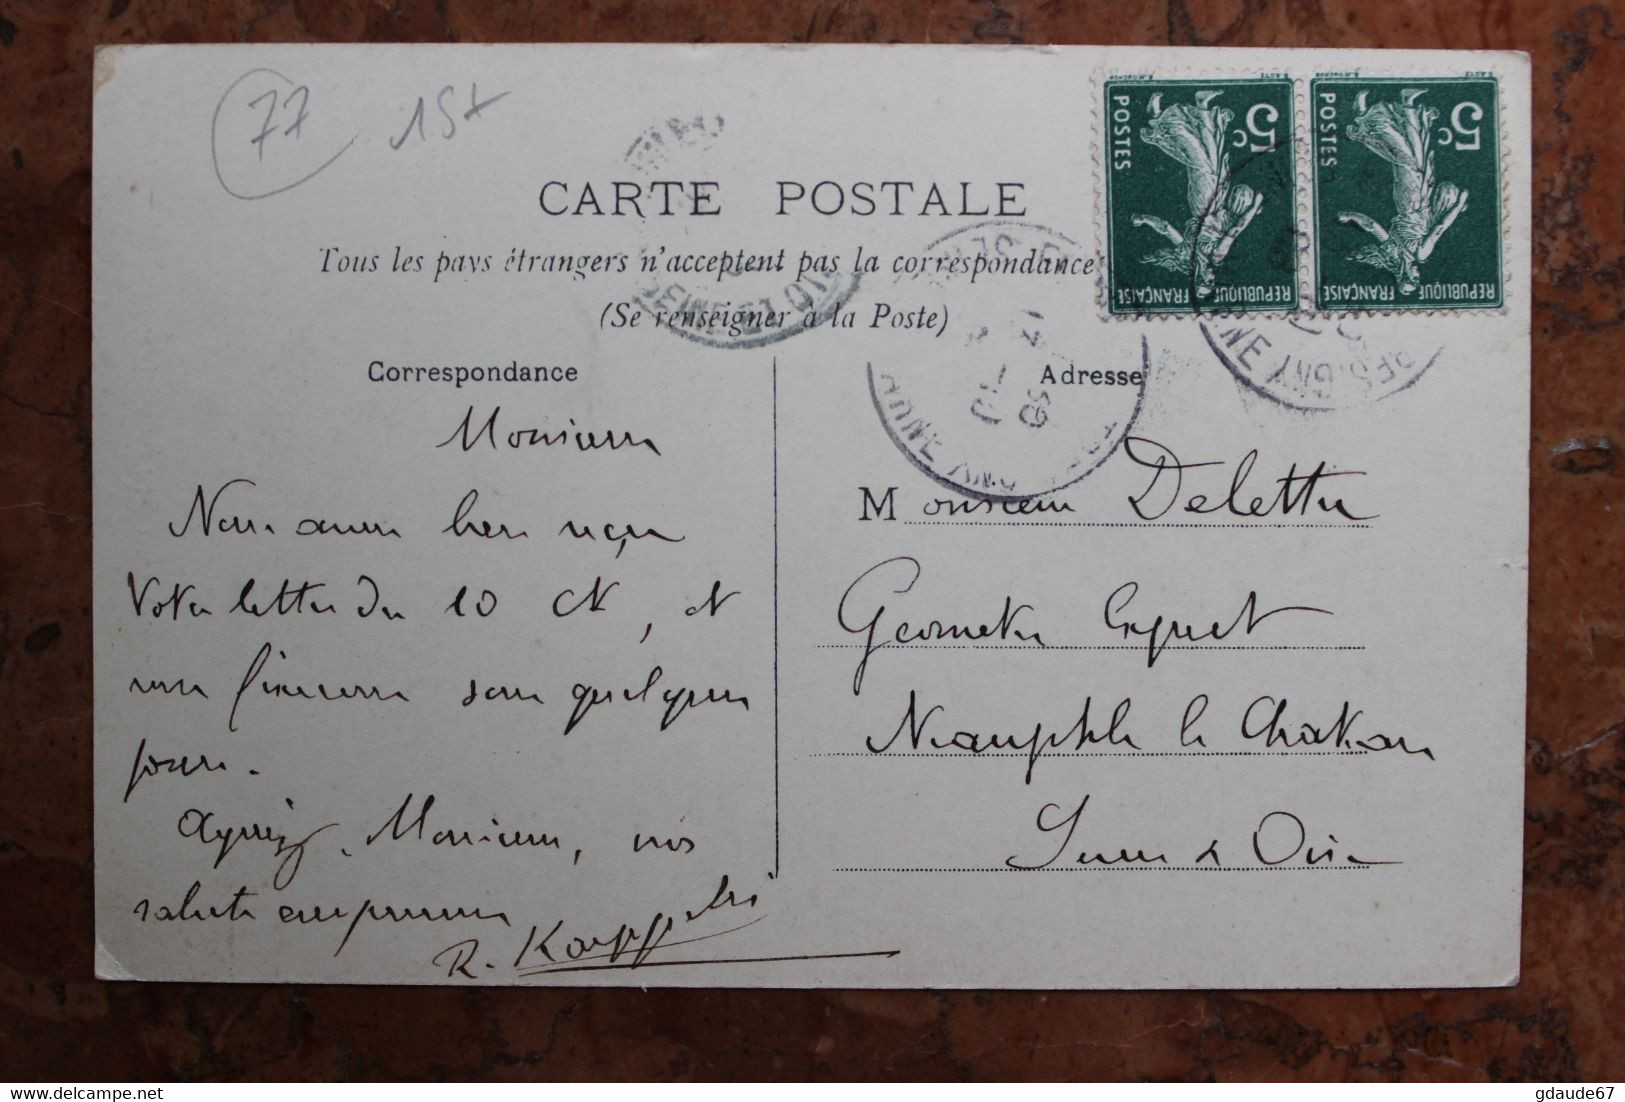 77 15+
CARTE POSTALE
Tous les pays étrangers n'acceptent pas la correspondance
(Se renseigner à la Poste)
5c POSTES REPUBLIQUE FRANÇAISE
5c POSTES REPUBLIQUE FRANÇAISE
SEINE ET OISE
Correspondance
Monsieur
Nous avons bien reçu
Votre lettre du 10 Ct, et
sous quelques
jours.
Agréez, Monsieur, nos
saluts empressés
R.
Adresse
Monsieur Delettre
Géomètre Expert
Neauphle le Château
Seine & Oise
gdaude67